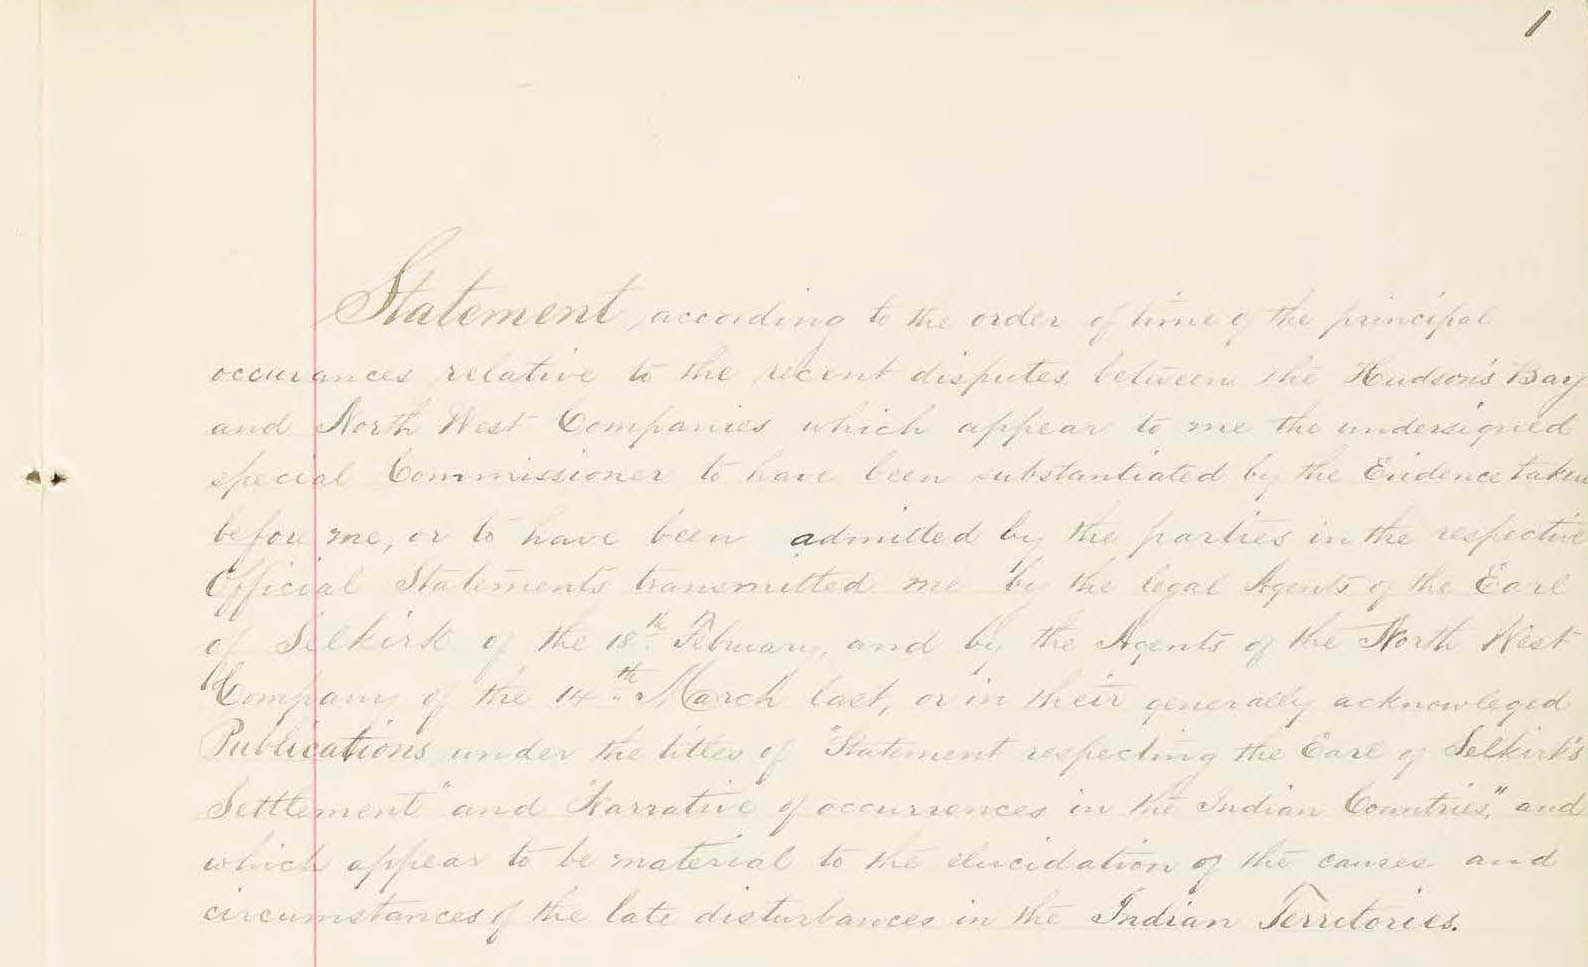 1
Statement, according to the order of time of the principal
occurances relative to the recent disputes between the Hudson's Bay
and North West Companies which appear to me the undersigned
special Commissioner to have been substantiated by the Evidence taken
before me, or to have been admitted by the parties in the respective
Official Statements transmitted me by the legal Agents of the Earl
of Selkirk of the 18th February, and by the Agents of the North West
Company of the 14th March last, or in their generally acknowleged
Publications under the titles of "Statement respecting the Earl of Selkirk's
Settlement" and "Narrative of occurrences in the Indian Countries," and
which appear to be material to the elucidation of the causes and
circumstances of the late disturbances in the Indian Territories.